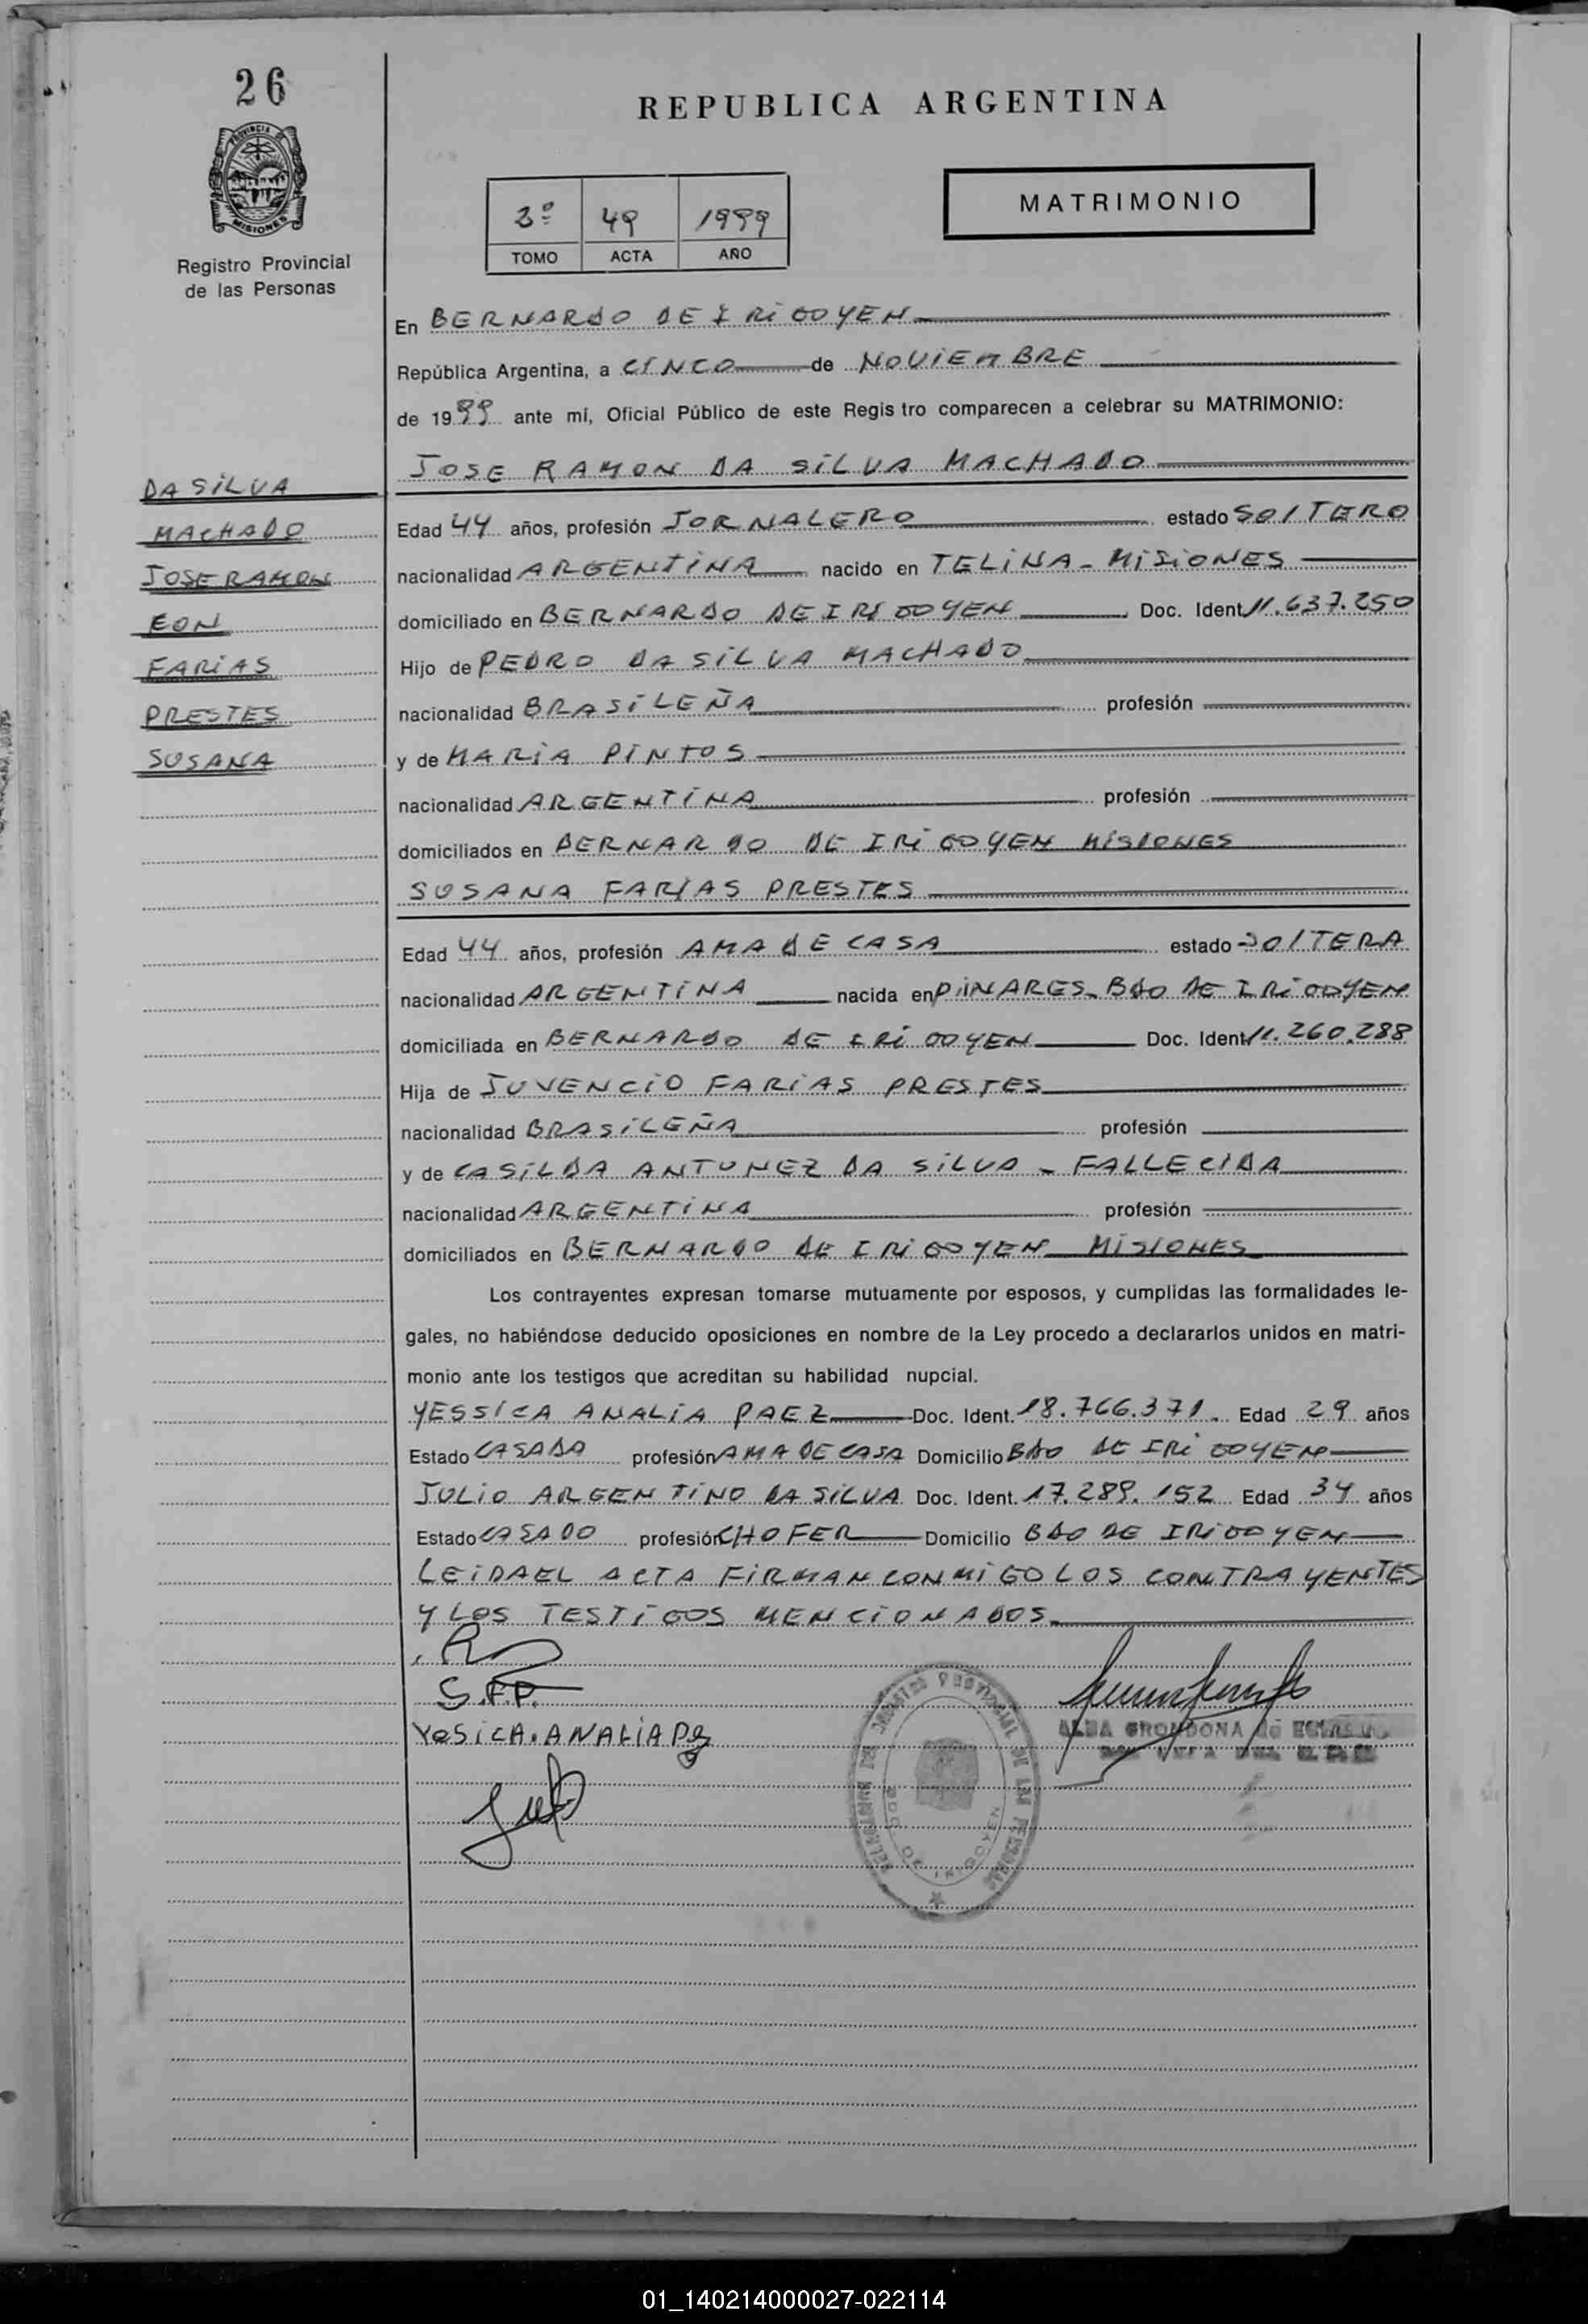 26
REPUBLICA ARGENTINA
PROVINCIA DE
MISIONES
Registro Provincial
de las Personas
2º 49 1999
TOMO ACTA AÑO
MATRIMONIO
En BERNARDO DE IRIGOYEN
República Argentina, a CINCO de NOVIEMBRE
de 1999 ante mí, Oficial Público de este Regis tro comparecen a celebrar su MATRIMONIO:
JOSE RAMON DA SILVA MACHADO
DA SILVA
MACHADO
JOSE RAMON
CON
FARIAS
PRESTES
SUSANA
Edad 44 años, profesión JORNALERO estado SOLTERO
nacionalidad ARGENTINA nacido en TELINA - MISIONES
domiciliado en BERNARDO DE IRIGOYEN Doc. Ident. 11.637.250
Hijo de PEDRO DA SILVA MACHADO
nacionalidad BRASILEÑA profesión
y de MARIA PINTOS
nacionalidad ARGENTINA profesión
domiciliados en BERNARDO DE IRIGOYEN MISIONES
SUSANA FARIAS PRESTES
Edad 44 años, profesión AMA DE CASA estado SOLTERA
nacionalidad ARGENTINA nacida en PIINARES - BDO DE IRIGOYEN
domiciliada en BERNARDO DE IRIGOYEN Doc. Ident. 11.260.288
Hija de JUVENCIO FARIAS PRESTES
nacionalidad BRASILEÑA profesión
y de CASILDA ANTUNEZ DA SILVA - FALLECIDA
nacionalidad ARGENTINA profesión
domiciliados en BERNARDO DE IRIGOYEN MISIONES
Los contrayentes expresan tomarse mutuamente por esposos, y cumplidas las formalidades le-
gales, no habiéndose deducido oposiciones en nombre de la Ley procedo a declararlos unidos en matri-
monio ante los testigos que acreditan su habilidad nupcial.
YESSICA ANALIA PAEZ Doc. Ident. 18.766.371. Edad 29 años
Estado CASADA profesión AMA DE CASA Domicilio BDO DE IRIGOYEN
JULIO ARGENTINO DA SILVA Doc. Ident. 17.289.152 Edad 34 años
Estado CASADO profesión CHOFER Domicilio BDO DE IRIGOYEN
LEIDA EL ACTA FIRMAN CONMIGO LOS CONTRAYENTES
Y LOS TESTIGOS MENCIONADOS
S.F.P.
YESICA.ANALIA
ALBA GRONDONA de
REGISTRO PROVINCIAL DE LAS PERSONAS
BDO. DE IRIGOYEN
01_140214000027-022114